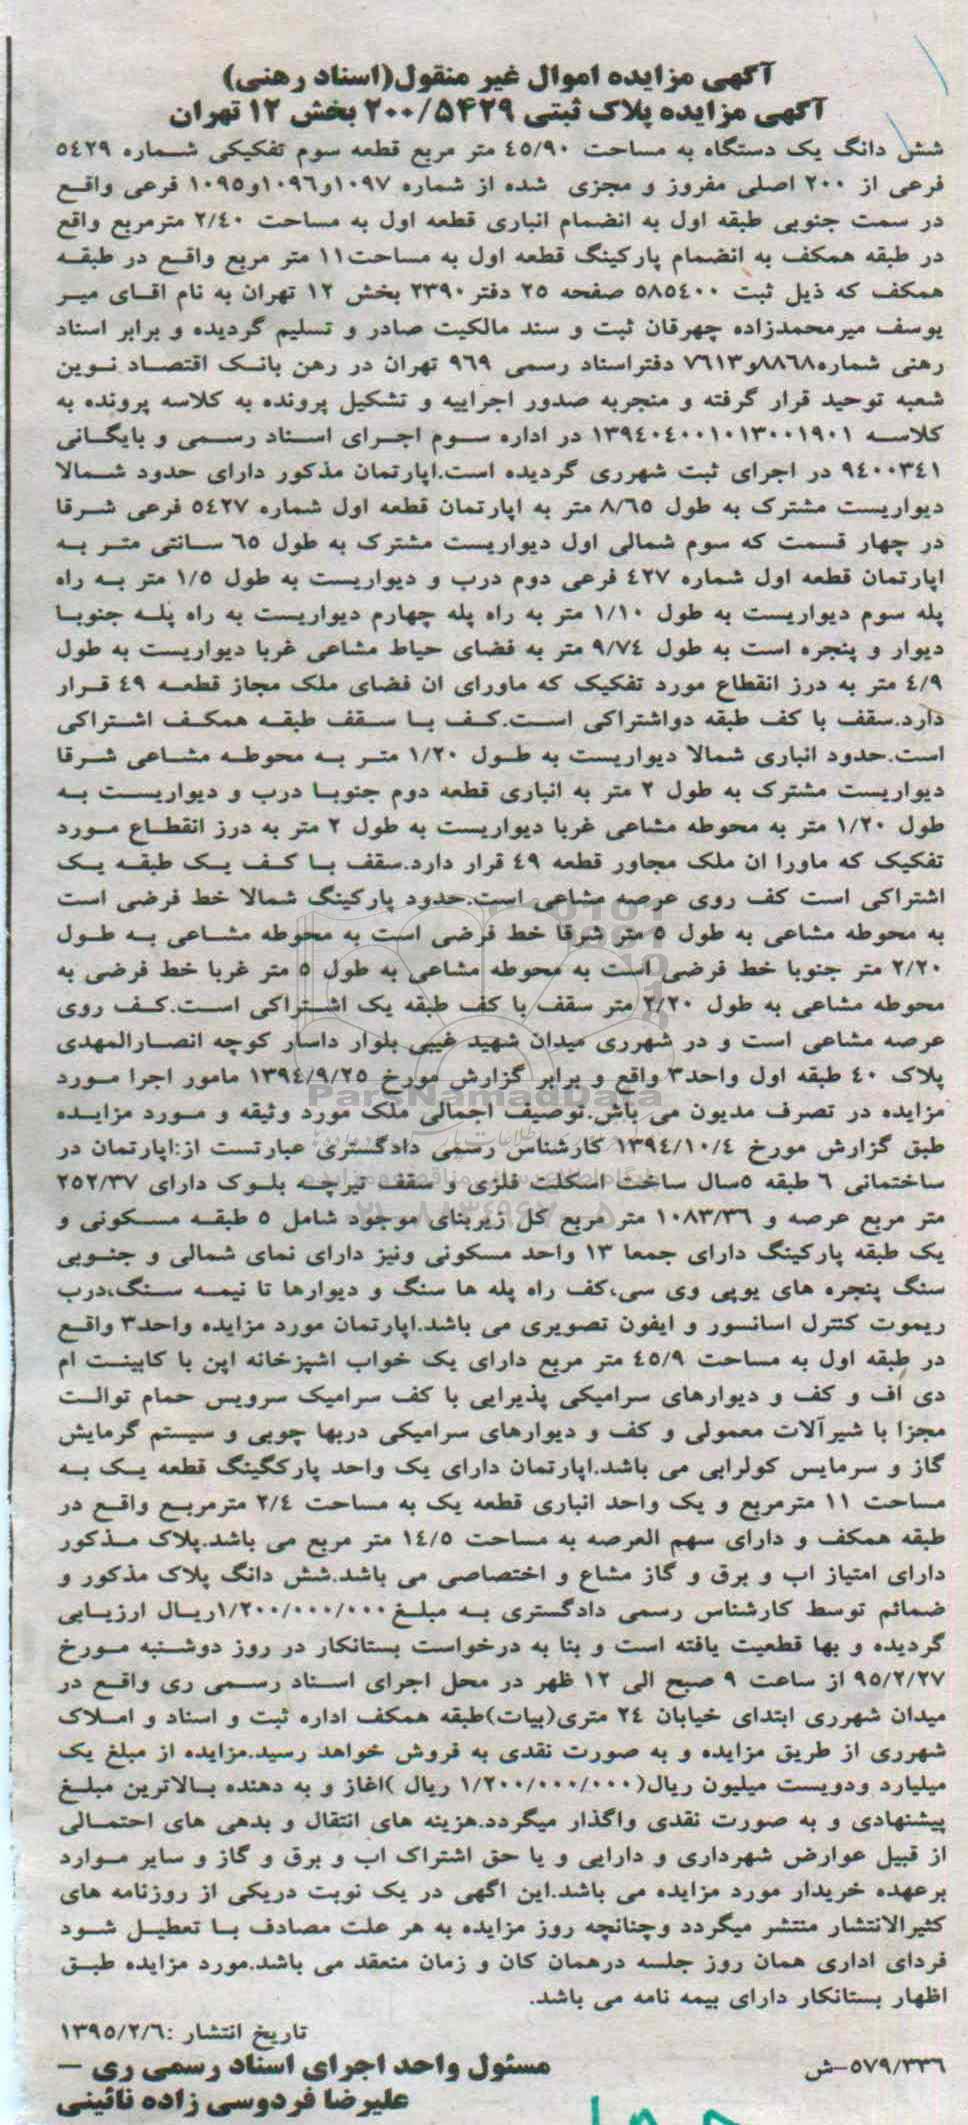 آگهی مزایده اموال غیر منقول(اسناد رهنی)
آگهی مزایده پلاک ثبتی ۲۰۰/۵۴۲۹ بخش ۱۲ تهران
شش دانگ یک دستگاه به مساحت ۴۵/۹۰ متر مربع قطعه سوم تفکیکی شماره ۵۴۲۹
فرعی از ۲۰۰ اصلی مفروز و مجزی شده از شماره ۱۰۹۷و۱۰۹۶و۱۰۹۵ فرعی واقع
در سمت جنوبی طبقه اول به انضمام انباری قطعه اول به مساحت ۲/۴۰ مترمربع واقع
در طبقه همکف به انضمام پارکینگ قطعه اول به مساحت۱۱ متر مربع واقع در طبقه
همکف که ذیل ثبت ۵۸۵۴۰۰ صفحه ۲۵ دفتر۲۳۹۰ بخش ۱۲ تهران به نام اقای میر
یوسف میرمحمدزاده چهرقان ثبت و سند مالکیت صادر و تسلیم گردیده و برابر اسناد
رهنی شماره۸۸۶۸و۷۶۱۳ دفتراسناد رسمی ۹۶۹ تهران در رهن بانک اقتصاد نوین
شعبه توحید قرار گرفته و منجربه صدور اجراییه و تشکیل پرونده به کلاسه پرونده به
کلاسه ۱۳۹۴۰۴۰۰۱۰۱۳۰۰۱۹۰۱ در اداره سوم اجرای اسناد رسمی و بایگانی
۹۴۰۰۳۴۱ در اجرای ثبت شهرری گردیده است.اپارتمان مذکور دارای حدود شمالا
دیواریست مشترک به طول ۸/۶۵ متر به اپارتمان قطعه اول شماره ۵۴۲۷ فرعی شرقا
در چهار قسمت که سوم شمالی اول دیواریست مشترک به طول ۶۵ سانتی متر به
اپارتمان قطعه اول شماره ۴۲۷ فرعی دوم درب و دیواریست به طول ۱/۵ متر به راه
پله سوم دیواریست به طول ۱/۱۰ متر به راه پله چهارم دیواریست به راه پله جنوبا
دیوار و پنجره است به طول ۹/۷۴ متر به فضای حیاط مشاعی غربا دیواریست به طول
۴/۹ متر به درز انقطاع مورد تفکیک که ماورای ان فضای ملک مجاز قطعه ۴۹ قرار
دارد.سقف با کف طبقه دواشتراکی است.کف با سقف طبقه همکف اشتراکی
است.حدود انباری شمالا دیواریست به طول ۱/۲۰ متر به محوطه مشاعی شرقا
دیواریست مشترک به طول ۲ متر به انباری قطعه دوم جنوبا درب و دیواریست به
طول ۱/۲۰ متر به محوطه مشاعی غربا دیواریست به طول ۲ متر به درز انقطاع مورد
تفکیک که ماورا ان ملک مجاور قطعه ۴۹ قرار دارد.سقف با کف یک طبقه یک
اشتراکی است کف روی عرصه مشاعی است.حدود پارکینگ شمالا خط فرضی است
به محوطه مشاعی به طول ۵ متر شرقا خط فرضی است به محوطه مشاعی به طول
۲/۲۰ متر جنوبا خط فرضی است به محوطه مشاعی به طول ۵ متر غربا خط فرضی به
محوطه مشاعی به طول ۲/۲۰ متر سقف با کف طبقه یک اشتراکی است.کف روی
عرصه مشاعی است و در شهرری میدان شهید غیبی بلوار داسار کوچه انصارالمهدی
پلاک ۴۰ طبقه اول واحد۳ واقع و برابر گزارش مورخ ۱۳۹۴/۹/۲۵ مامور اجرا مورد
مزایده در تصرف مدیون می باش.توصیف اجمالی ملک مورد وثیقه و مورد مزایده
طبق گزارش مورخ ۱۳۹۴/۱۰/۴ کارشناس رسمی دادگستری عبارتست از:اپارتمان در
ساختمانی ۶ طبقه ۵سال ساخت اسکلت فلزی و سقف تیرچه بلوک دارای ۲۵۲/۳۷
متر مربع عرصه و ۱۰۸۳/۳۶ متر مربع کل زیربنای موجود شامل ۵ طبقه مسکونی و
یک طبقه پارکینگ دارای جمعا ۱۳ واحد مسکونی ونیز دارای نمای شمالی و جنوبی
سنگ پنجره های یوپی وی سی،کف راه پله ها سنگ و دیوارها تا نیمه سنگ،درب
ریموت کنترل اسانسور و ایفون تصویری می باشد.اپارتمان مورد مزایده واحد۳ واقع
در طبقه اول به مساحت ۴۵/۹ متر مربع دارای یک خواب اشپزخانه اپن با کابینت ام
دی اف و کف و دیوارهای سرامیکی پذیرایی با کف سرامیک سرویس حمام توالت
مجزا با شیرآلات معمولی و کف و دیوارهای سرامیکی دربها چوبی و سیستم گرمایش
گاز و سرمایس کولرابی می باشد.اپارتمان دارای یک واحد پارکگینگ قطعه یک به
مساحت ۱۱ مترمربع و یک واحد انباری قطعه یک به مساحت ۲/۴ مترمربع واقع در
طبقه همکف و دارای سهم العرصه به مساحت ۱۴/۵ متر مربع می باشد.پلاک مذکور
دارای امتیاز اب و برق و گاز مشاع و اختصاصی می باشد.شش دانگ پلاک مذکور و
ضمائم توسط کارشناس رسمی دادگستری به مبلغ۱/۲۰۰/۰۰۰/۰۰۰ریال ارزیابی
گردیده و بها قطعیت یافته است و بنا به درخواست بستانکار در روز دوشنبه مورخ
۹۵/۲/۲۷ از ساعت ۹ صبح الی ۱۲ ظهر در محل اجرای اسناد رسمی ری واقع در
میدان شهرری ابتدای خیابان ۲۴ متری(بیات)طبقه همکف اداره ثبت و اسناد و املاک
شهرری از طریق مزایده و به صورت نقدی به فروش خواهد رسید.مزایده از مبلغ یک
میلیارد ودویست میلیون ریال(۱/۲۰۰/۰۰۰/۰۰۰ ریال )اغاز و به دهنده بالاترین مبلغ
پیشنهادی و به صورت نقدی واگذار میگردد.هزینه های انتقال و بدهی های احتمالی
از قبیل عوارض شهرداری و دارایی و یا حق اشتراک اب و برق و گاز و سایر موارد
برعهده خریدار مورد مزایده می باشد.این اگهی در یک نوبت دریکی از روزنامه های
کثیرالانتشار منتشر میگردد وچنانچه روز مزایده به هر علت مصادف با تعطیل شود
فردای اداری همان روز جلسه درهمان کان و زمان منعقد می باشد.مورد مزایده طبق
اظهار بستانکار دارای بیمه نامه می باشد.
تاریخ انتشار :۱۳۹۵/۲/۶
۵۷۹/۳۳۶-ش
مسئول واحد اجرای اسناد رسمی ری –
علیرضا فردوسی زاده نائینی
ParsNamadData